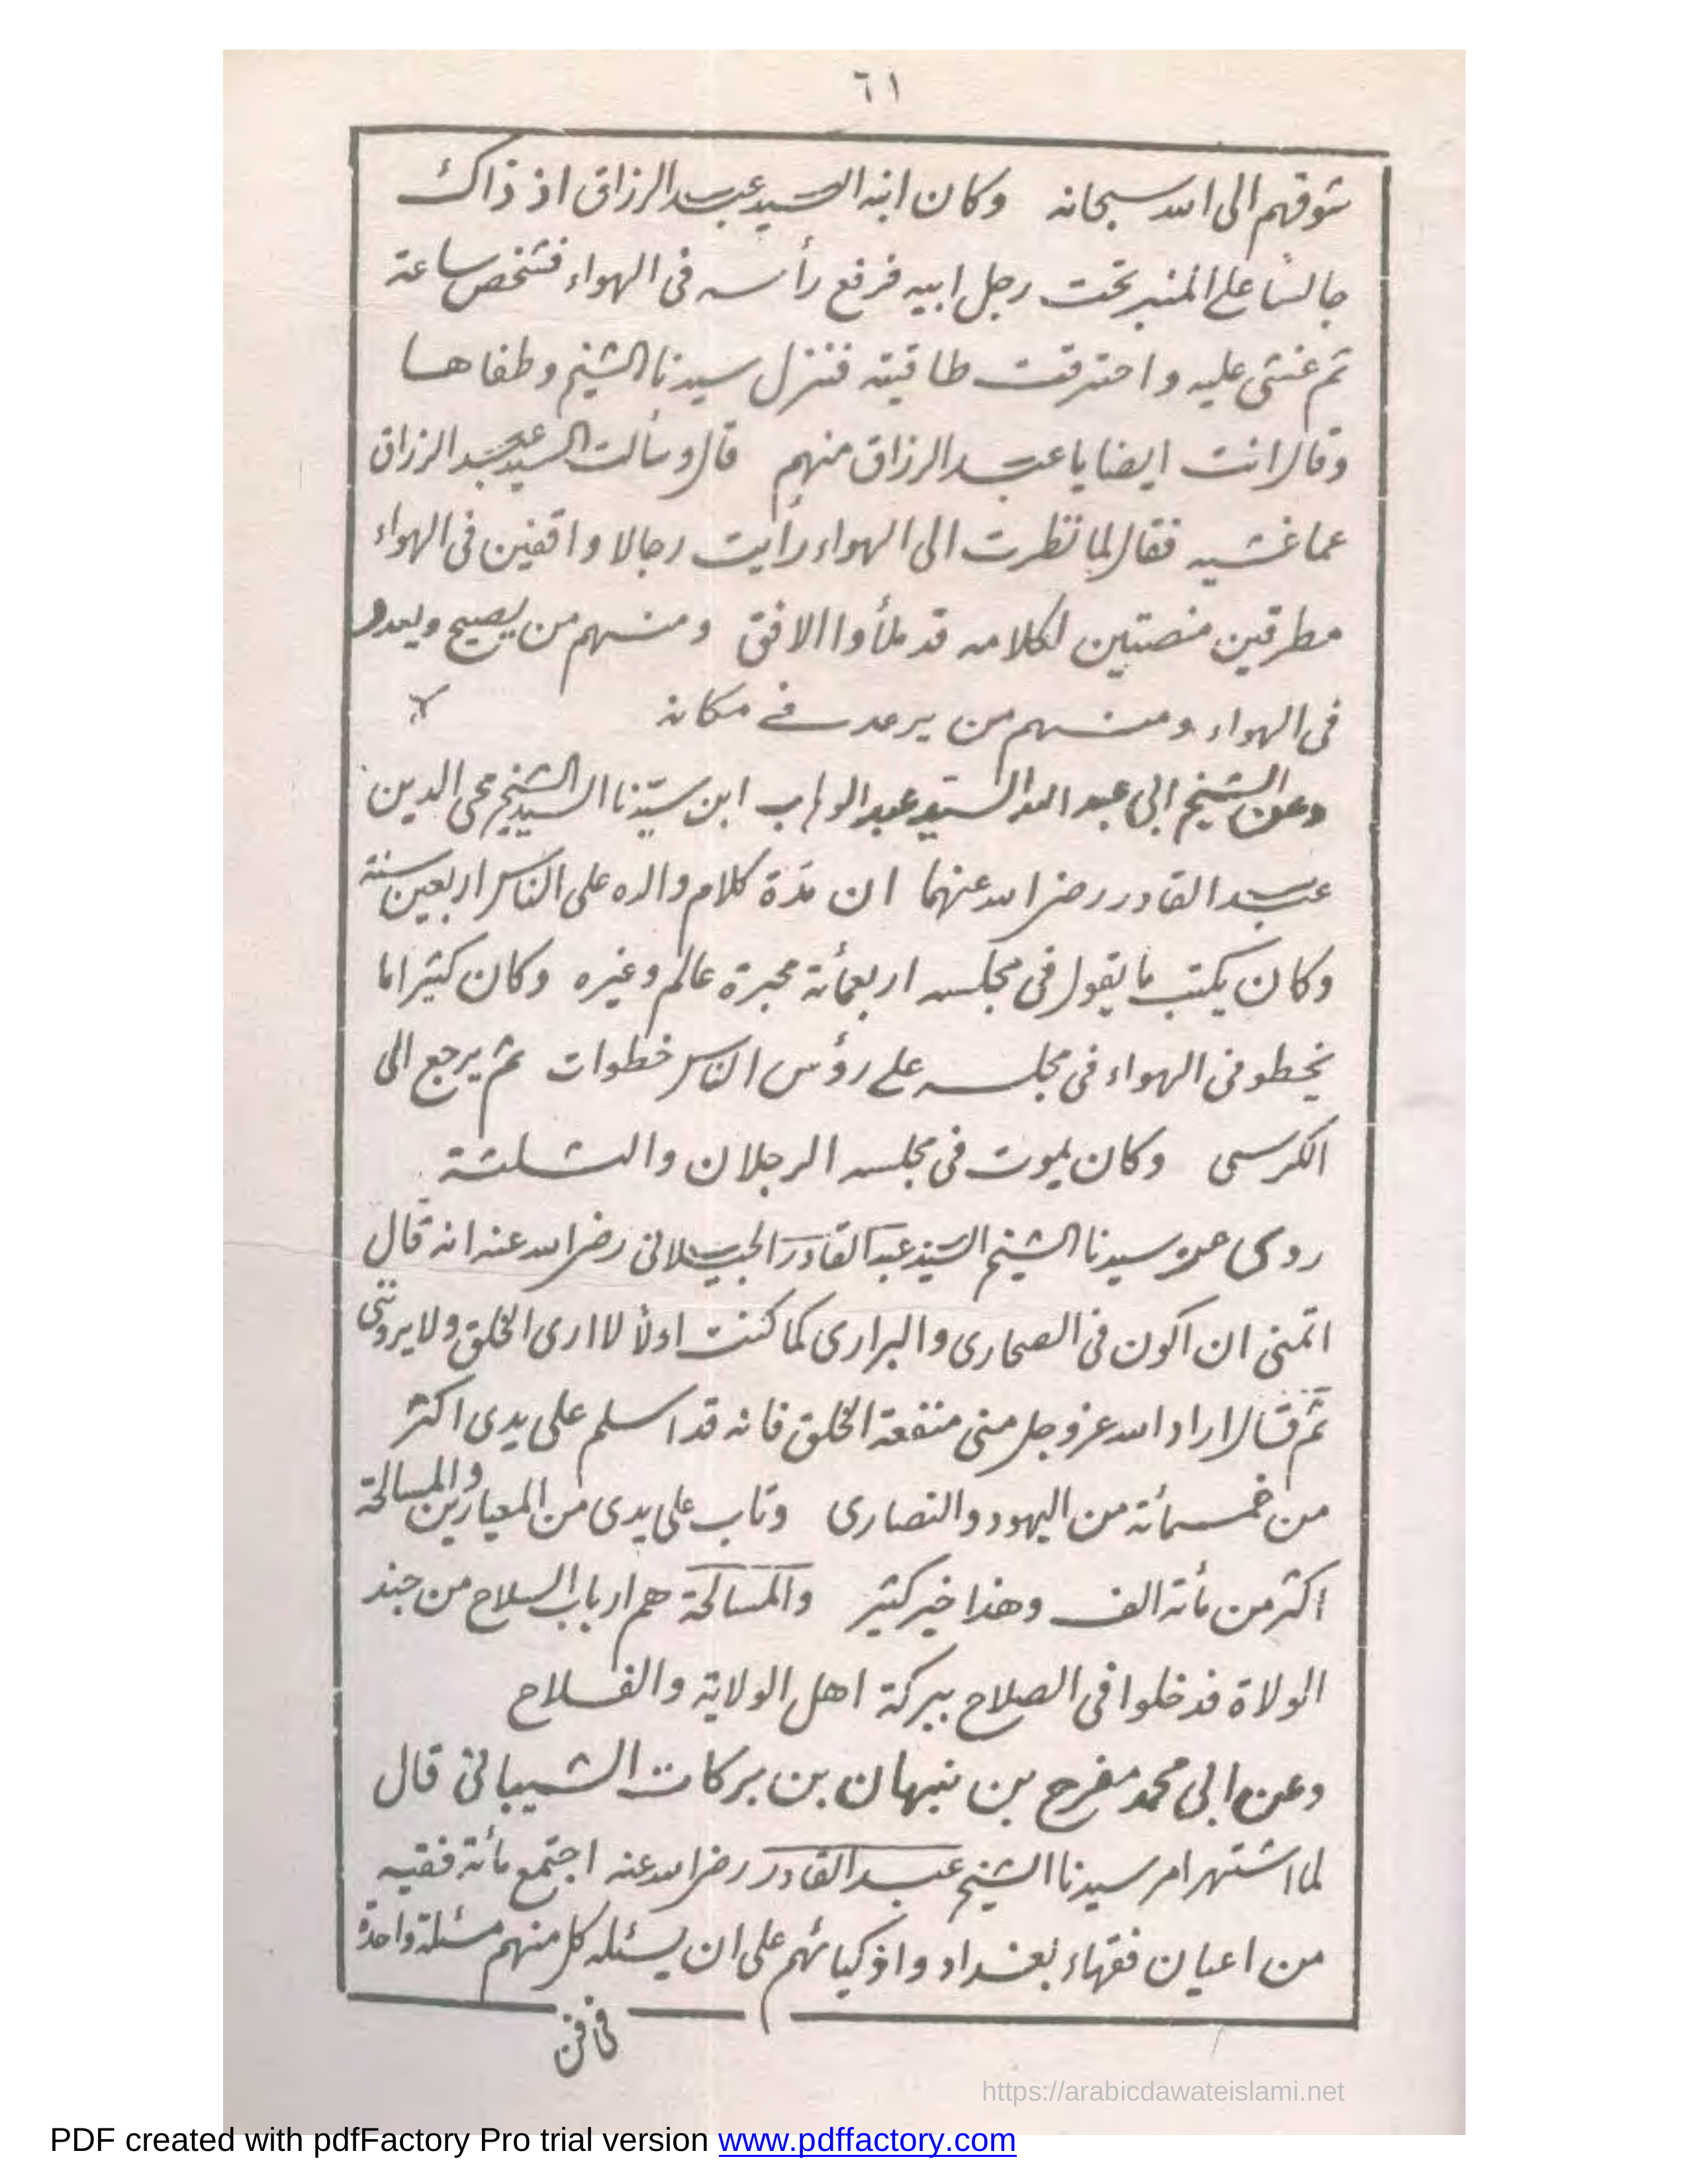 ٦١
شوقهم الى الله سبحانه وكان ابنه السيد عبد الرزاق اذ ذاك
جالسا على المنبر تحت رجل ابيه فرفع رأسه فى الهواء فشخص ساعة
ثم غشى عليه واحترقت طاقيته فنزل سيدنا الشيخ وطفاها
وقال انت ايضا يا عبد الرزاق منهم قال وسألت السيد عبد الرزاق
عما غشيه فقال لما نظرت الى الهواء رأيت رجالا واقفين فى الهواء
مطرقين منصتين لكلامه قد ملأوا الافق ومنهم من يصيح ويعدو
فى الهواء ومنهم من يرعد فى مكانه
وعن الشيخ ابى عبد الله السيد عبد الوهاب ابن سيّدنا السيد الشيخ محى الدين
عبد القادر رضى الله عنهما ان مدّة كلام والده على الناس اربعين سنة
وكان يكتب ما يقول فى مجلسه اربعمأئة محبرة عالم وغيره وكان كثيرا ما
يخطو فى الهواء فى مجلسه على رؤس الناس خطوات ثم يرجع الى
الكرسى وكان يموت فى مجلسه الرجلان والثلثة
روى عن سيدنا الشيخ السيد عبد القادر الجيلانى رضى الله عنه انه قال
اتمنى ان اكون فى الصحارى والبرارى كما كنت اولا لا ارى الخلق ولا يروننى
ثم قال اراد الله عز وجل منى منفعة الخلق فانه قد اسلم على يدى اكثر
من خمسمائة من اليهود والنصارى وتاب على يدى من المعيارين والمسالحة
اكثر من مأئة الف وهذا خير كثير والمسالحة هم ارباب السلاح من جند
الولاة فدخلوا فى الصلاح ببركة اهل الولاية والفلاح
وعن ابى محمد مفرح بن نبهان بن بركات الشيبانى قال
لما اشتهر امر سيدنا الشيخ عبد القادر رضى الله عنه اجتمع مأئة فقيه
من اعيان فقهاء بغداد واذكيائهم على ان يسئله كل منهم مسئلة واحدة
فى فن
https://arabicdawateislami.net
PDF created with pdfFactory Pro trial version www.pdffactory.com